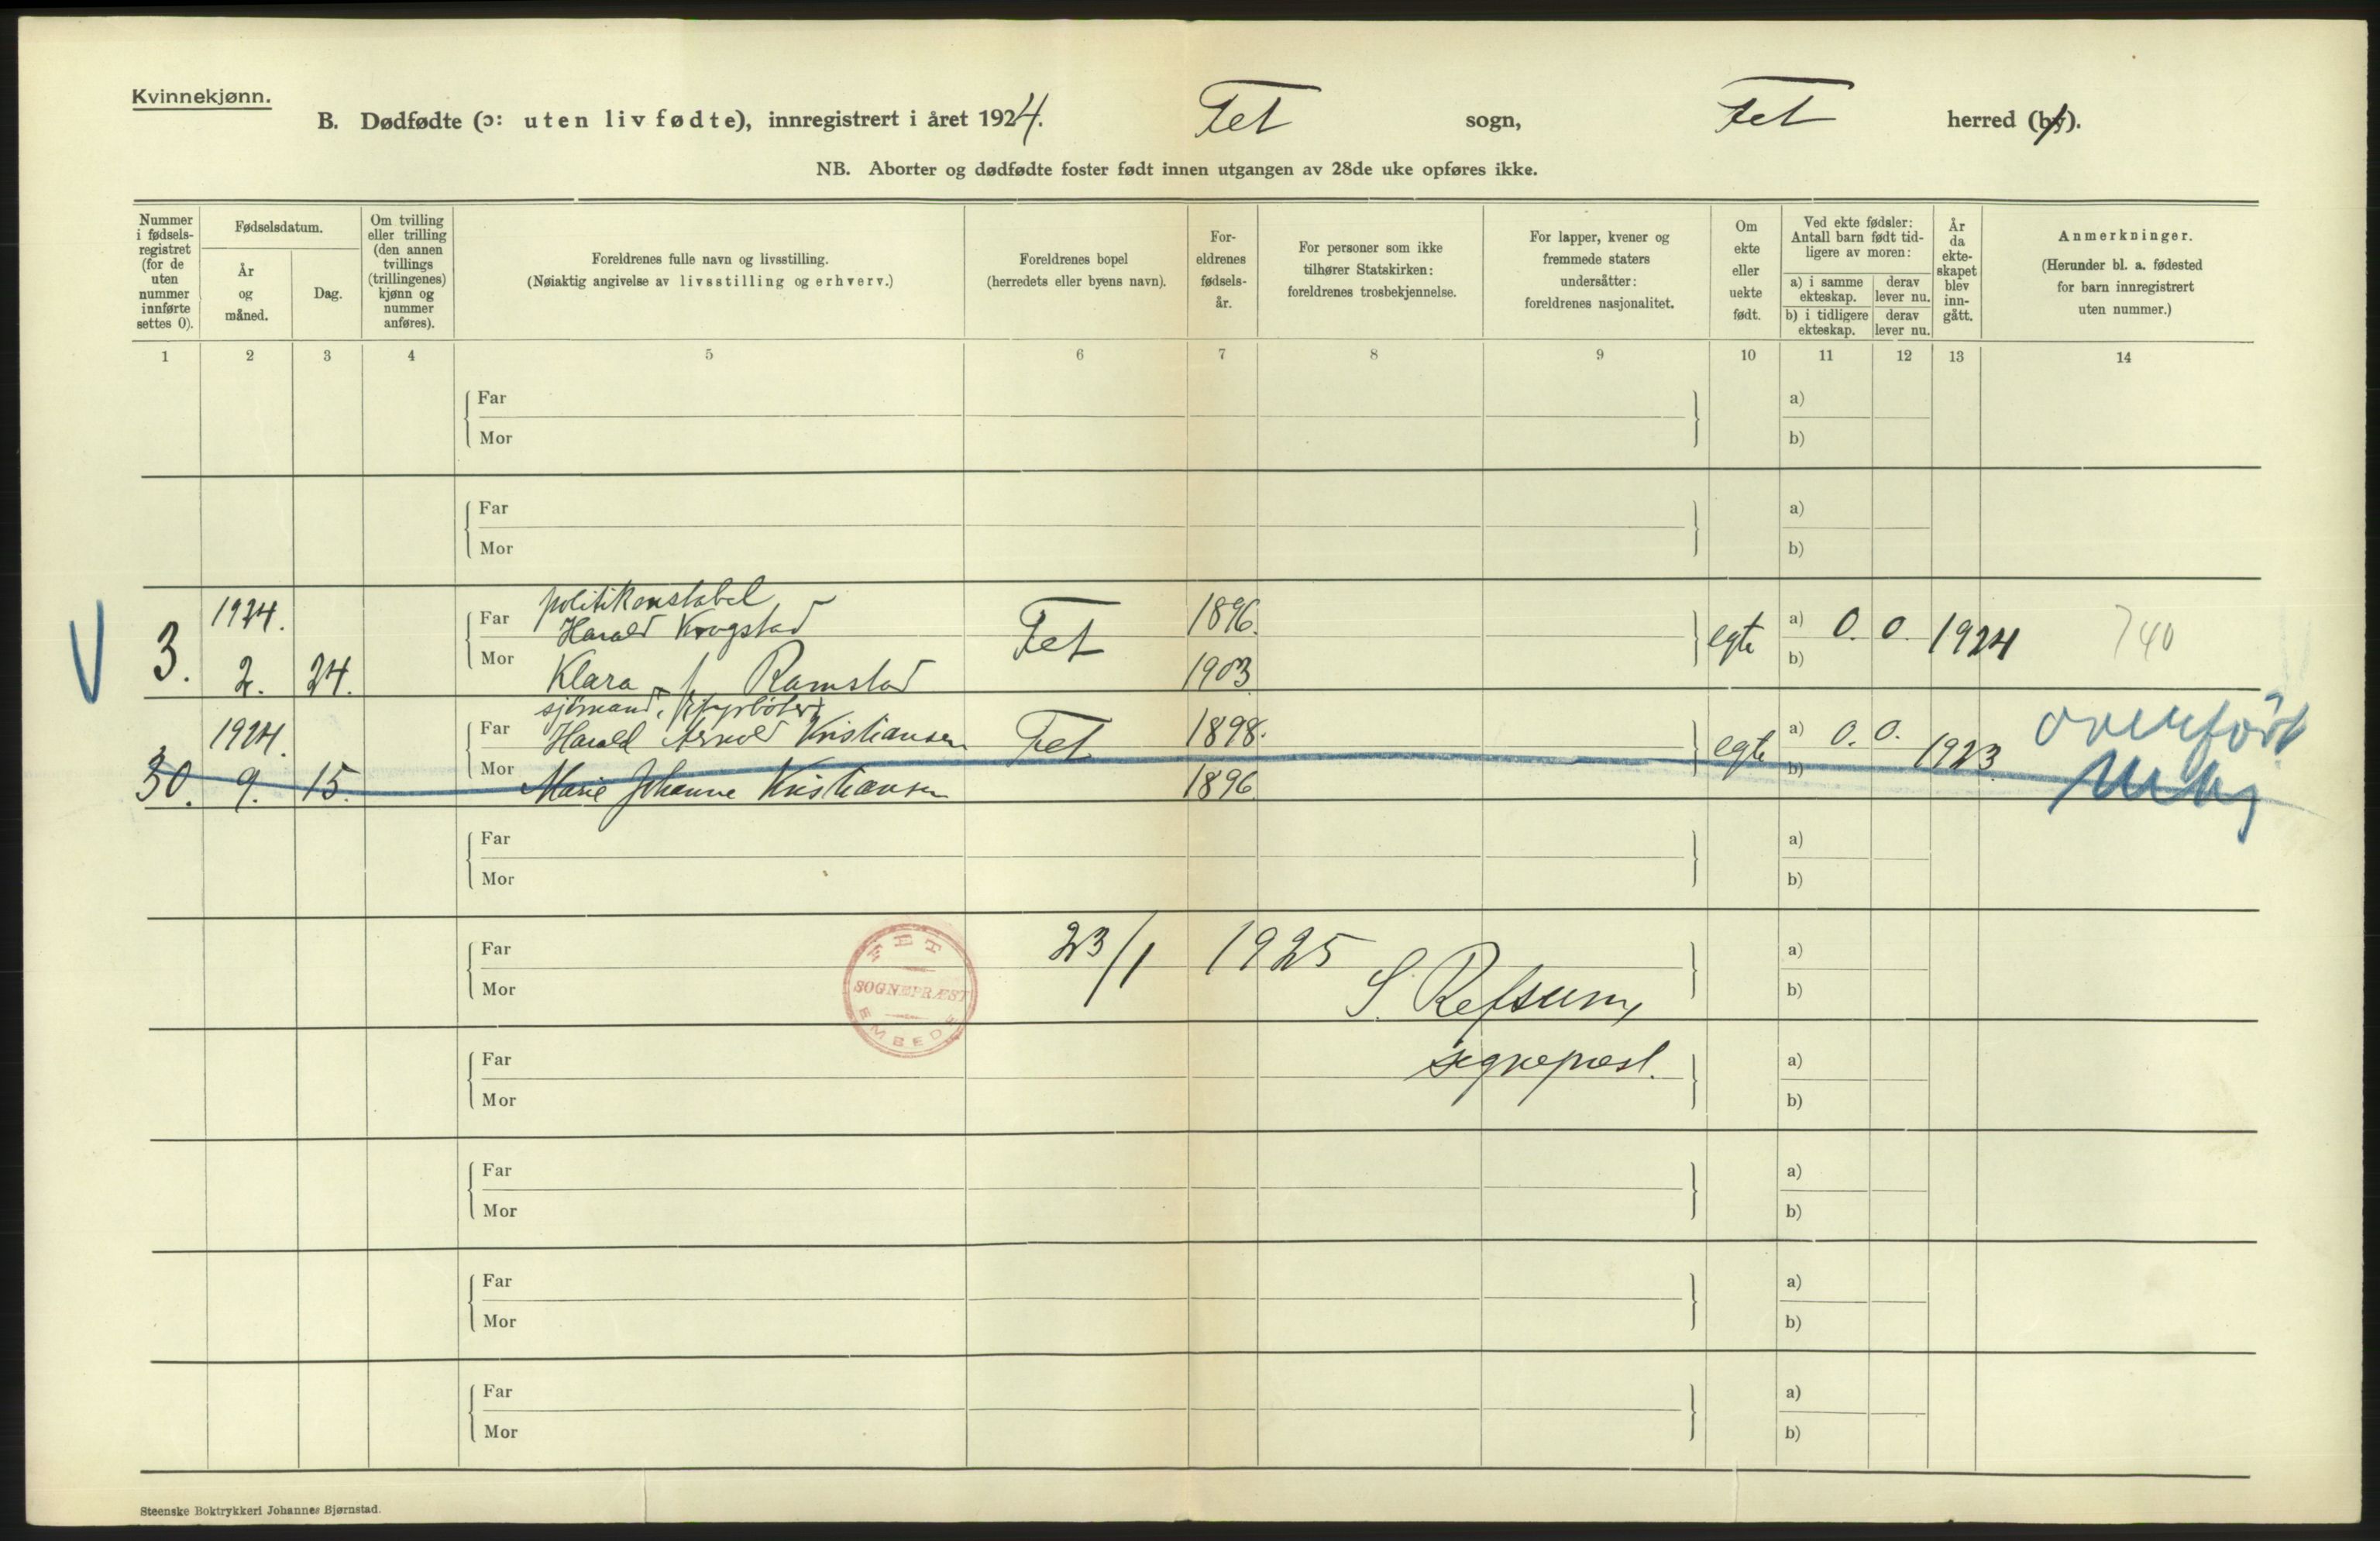 Kvinnekjønn.
B. Dødfødte (ɔ: uten liv fødte), innregistrert i året 1924. Fet sogn, Fet herred (by).
NB. Aborter og dødfødte foster født innen utgangen av 28de uke opføres ikke.
Nummer
i fødsels-
registret
(for de
uten
nummer
innførte
settes 0).
Fødselsdatum.
År
og
måned.
Dag.
Om tvilling
eller trilling
(den annen
tvillings
(trillingenes)
kjønn og
nummer
anføres).
Foreldrenes fulle navn og livsstilling.
(Nøiaktig angivelse av livsstilling og erhverv.)
Foreldrenes bopel
(herredets eller byens navn).
For-
eldrenes
fødsels-
år.
For personer som ikke
tilhører Statskirken:
foreldrenes trosbekjennelse.
For lapper, kvener og
fremmede staters
undersåtter:
foreldrenes nasjonalitet.
Om
ekte
eller
uekte
født.
Ved ekte fødsler:
Antall barn født tid-
ligere av moren:
a) i samme
ekteskap.
derav
lever nu.
b) i tidligere
ekteskap.
derav
lever nu.
År
da
ekte-
skapet
blev
inn-
gått.
Anmerkninger.
(Herunder bl. a. fødested
for barn innregistrert
uten nummer.)
1 2 3 4 5 6 7 8 9 10 11 12 13 14
Far a)
Mor b)
Far a)
Mor b)
politikonstabel
1924. Far Harald Krogstad Fet 1896. egte a) 0. 0. 1924 740
V 3. 2. 24. Mor Klara f. Ramstad 1903 b)
sjømand,
1924. Far Harald Arnold Kristiansen Fet 1898. egte a) 0. 0. 1923. overført
30. 9. 15. Mor Marie Johanne Kristiansen 1896 b)
Far a)
Mor b)
Far 23/1 1925 a)
Mor S. Refsum, b)
FET
SOGNEPRÆST
EMBEDE
Far sognepræst. a)
Mor b)
Far a)
Mor b)
Far a)
Mor b)
Far a)
Mor b)
Steenske Boktrykkeri Johannes Bjørnstad.